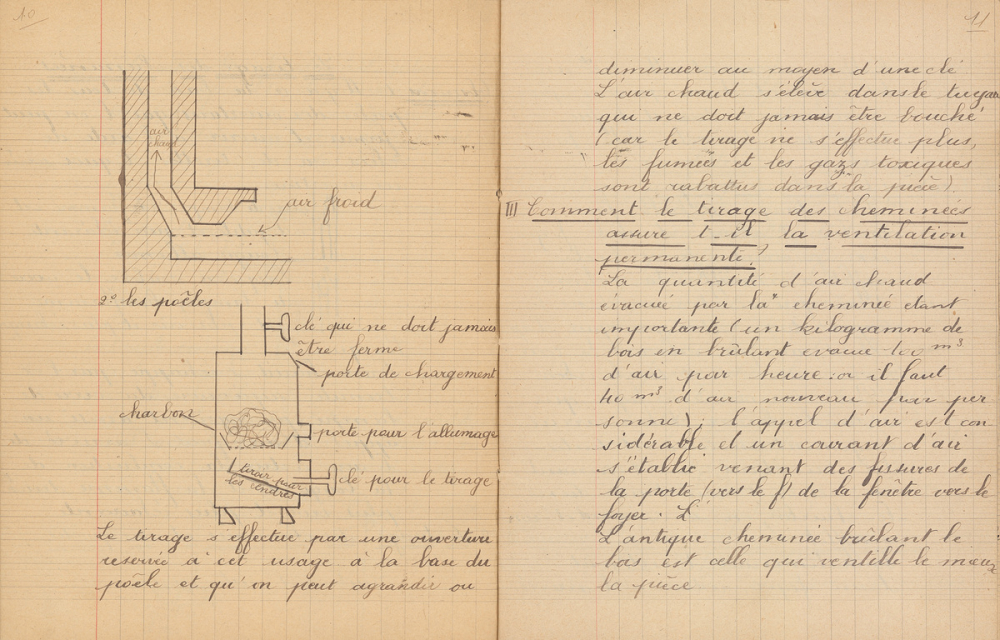 10
air
chaud
air froid
2° les poêles
clé qui ne doit jamais
être ferme
porte de chargement
charbon
porte pour l'allumage
tiroir pour
les cendres
clé pour le tirage
Le tirage s'effectue par une ouverture
reservée à cet usage à la base du
poêle et qu'on peut agrandir ou
11
diminuer au moyen d'une clé
L'air chaud s'élève dans le tuyau
qui ne doit jamais être bouché
(car le tirage ne s'effectue plus,
les fumées et les gazs toxiques
sont rabattus dans la pièce).
III Comment le tirage des cheminées
assure t-il la ventilation
permanente.
La quantité d'air chaud
évacué par la cheminée étant
importante (un kilogramme de
bois en brûlant évacue 100 m³
d'air par heure : or il faut
40 m³ d'air nouveau par per
sonne) ; l'appel d'air est con
sidérable et un courant d'air
s'établit venant des fissures de
la porte (vers le f) de la fenêtre vers le
foyer. L
L'antique cheminée brûlant le
bois est celle qui ventille le mieux
la pièce